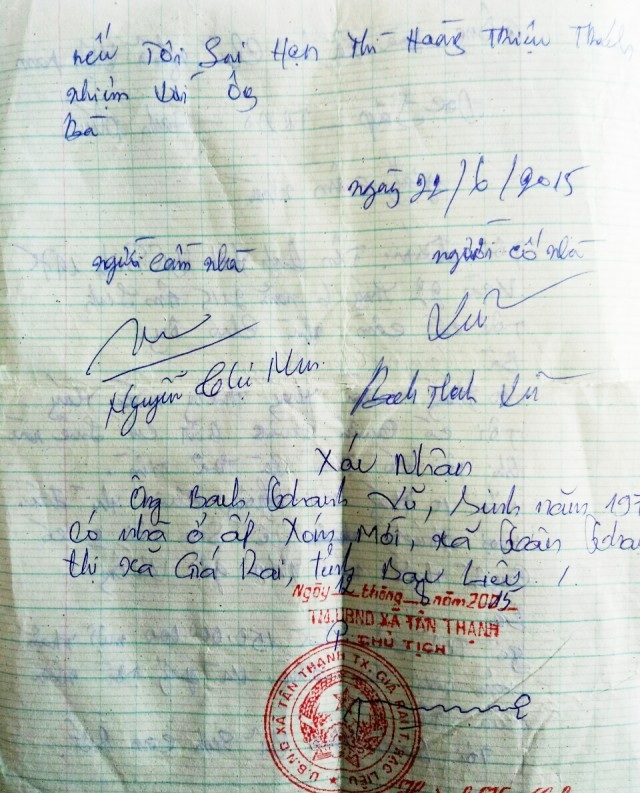 nếu Tôi Sai Hạn Thì Hoàng Thiệu Trách
nhiệm với Ông
Bà
ngày 22/6/2015
người cầm nhà
người cố nhà
Vũ
Nguyễn Chí Min
Bach Thanh Vũ
Xác Nhận
Ông Bach Thanh Vũ, sinh năm 197
có nhà ở ấp Xóm Mới, xã Tân Thạnh
thị xã Giá Rai, tỉnh Bạc Liêu /
Ngày tháng năm 2015
TM.UBND XÃ TÂN THẠNH
P CHỦ TỊCH
U.B.N.D XÃ TÂN THẠNH TX. GIÁ RAI T. BẠC LIÊU